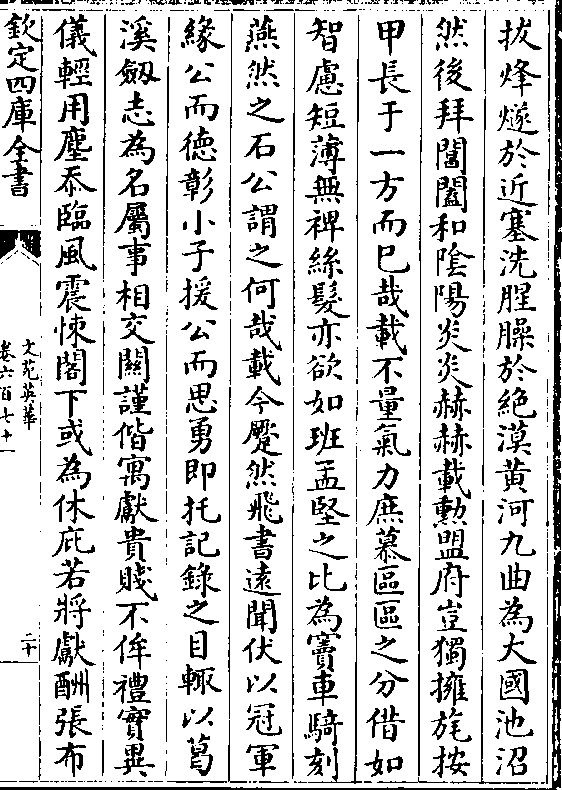 拔烽燧於近塞洗腥臊於絶漠黄河九曲為大國池沼
然後拜閶闔和陰陽炎炎赫赫載勲盟府豈獨擁旄按
甲長于一方而已哉載不量氣力庶慕區區之分借如
智慮短薄無裨絲髮亦欲如班孟堅之比為竇車騎刻
燕然之石公謂之何哉載今蹷然飛書遠聞伏以冠軍
緣公而徳彰小子援公而思勇即托記録之目輙以葛
溪劔志為名屬事相交關謹偕寓獻貴賤不侔禮實異
儀輕用塵忝臨風震悚閣下或為休庇若將獻酬張布
欽定四庫全書
文苑英華
卷六百七十一
二十